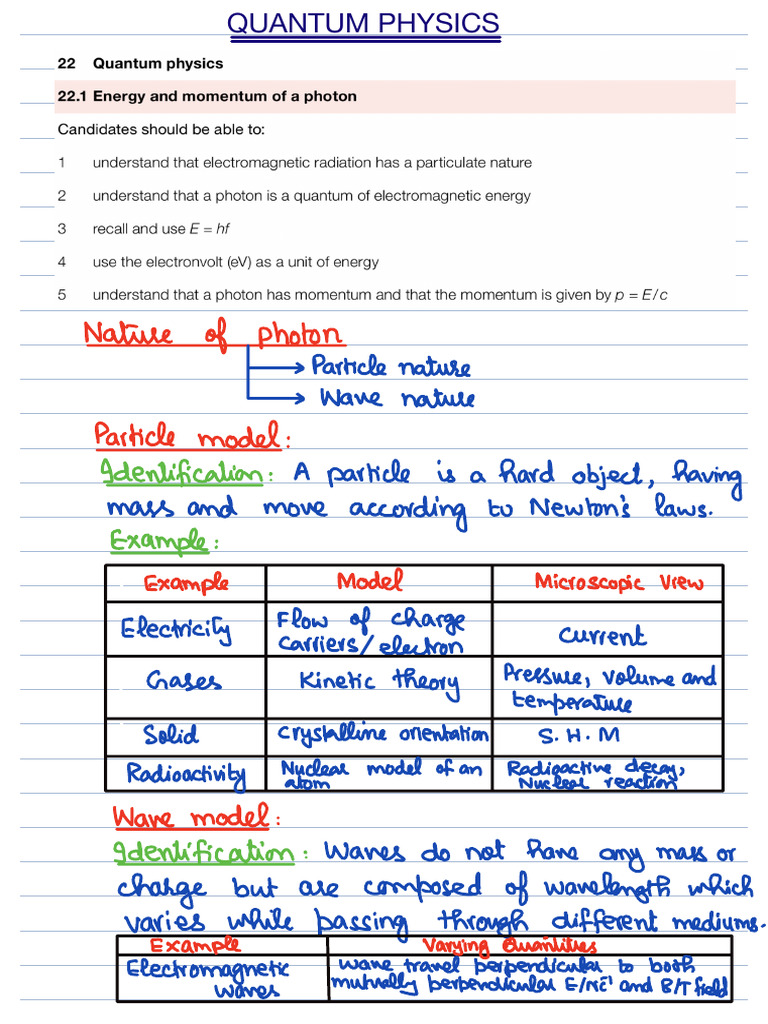 QUANTUM PHYSICS
22 Quantum physics
22.1 Energy and momentum of a photon
Candidates should be able to:
1 understand that electromagnetic radiation has a particulate nature
2 understand that a photon is a quantum of electromagnetic energy
3 recall and use E = hf
4 use the electronvolt (eV) as a unit of energy
5 understand that a photon has momentum and that the momentum is given by p = E/c
Nature of photon
Particle nature
Wave nature
Particle model:
Identification: A particle is a hard object, having
mass and move according to Newton's laws.
Example:
Example Model Microscopic View
Electricity Flow of charge
carriers/electron current
Gases Kinetic theory Pressure, volume and
temperature
Solid crystalline orientation S.H.M
Radioactivity Nuclear model of an
atom Radioactive decay,
Nuclear reaction
Wave model:
Identification: Waves do not have any mass or
charge but are composed of wavelength which
varies while passing through different mediums.
Example Varying Quantities
Electromagnetic
waves wave travel perpendicular to both
mutually perpendicular E/NC⁻¹ and B/T field